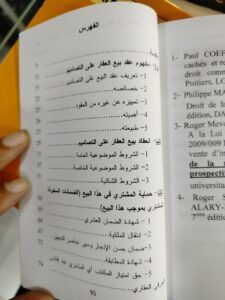 الفهرس
مقدمة
أولا- مفهوم عقد بيع العقار على التصاميم
1- تعريف عقد بيع العقار على التصاميم
2- خصائصه
3- تمييزه عن غيره من العقود
4- أهميته
5- طبيعته
ثانيا- انعقاد بيع العقار على التصاميم
1- الشروط الموضوعية العامة
2- الشروط الموضوعية الخاصة
3- الشروط الشكلية
ثالثا- حماية المشتري في هذا البيع (الضمانات الممنوحة للمشتري بموجب هذا البيع)
1- شهادة الضمان العشري
2- انتقال الملكية
3- ضمان حسن الإنجاز وسير عناصر التجهيز
4- شهادة المطابقة
5- حق امتياز المكتتب أي المشتري عند إفلاس
المرقي العقاري
95
1- Paul COEF
cachés et r
droit comm
Poitiers, LG
2- Philippe MA
Droit de la
édition, DA
3- Roger Meva
A la Loi
2009/009
vente d'im
de la
prospectiv
universita
4- Roger S
ALARY-
7ème édition